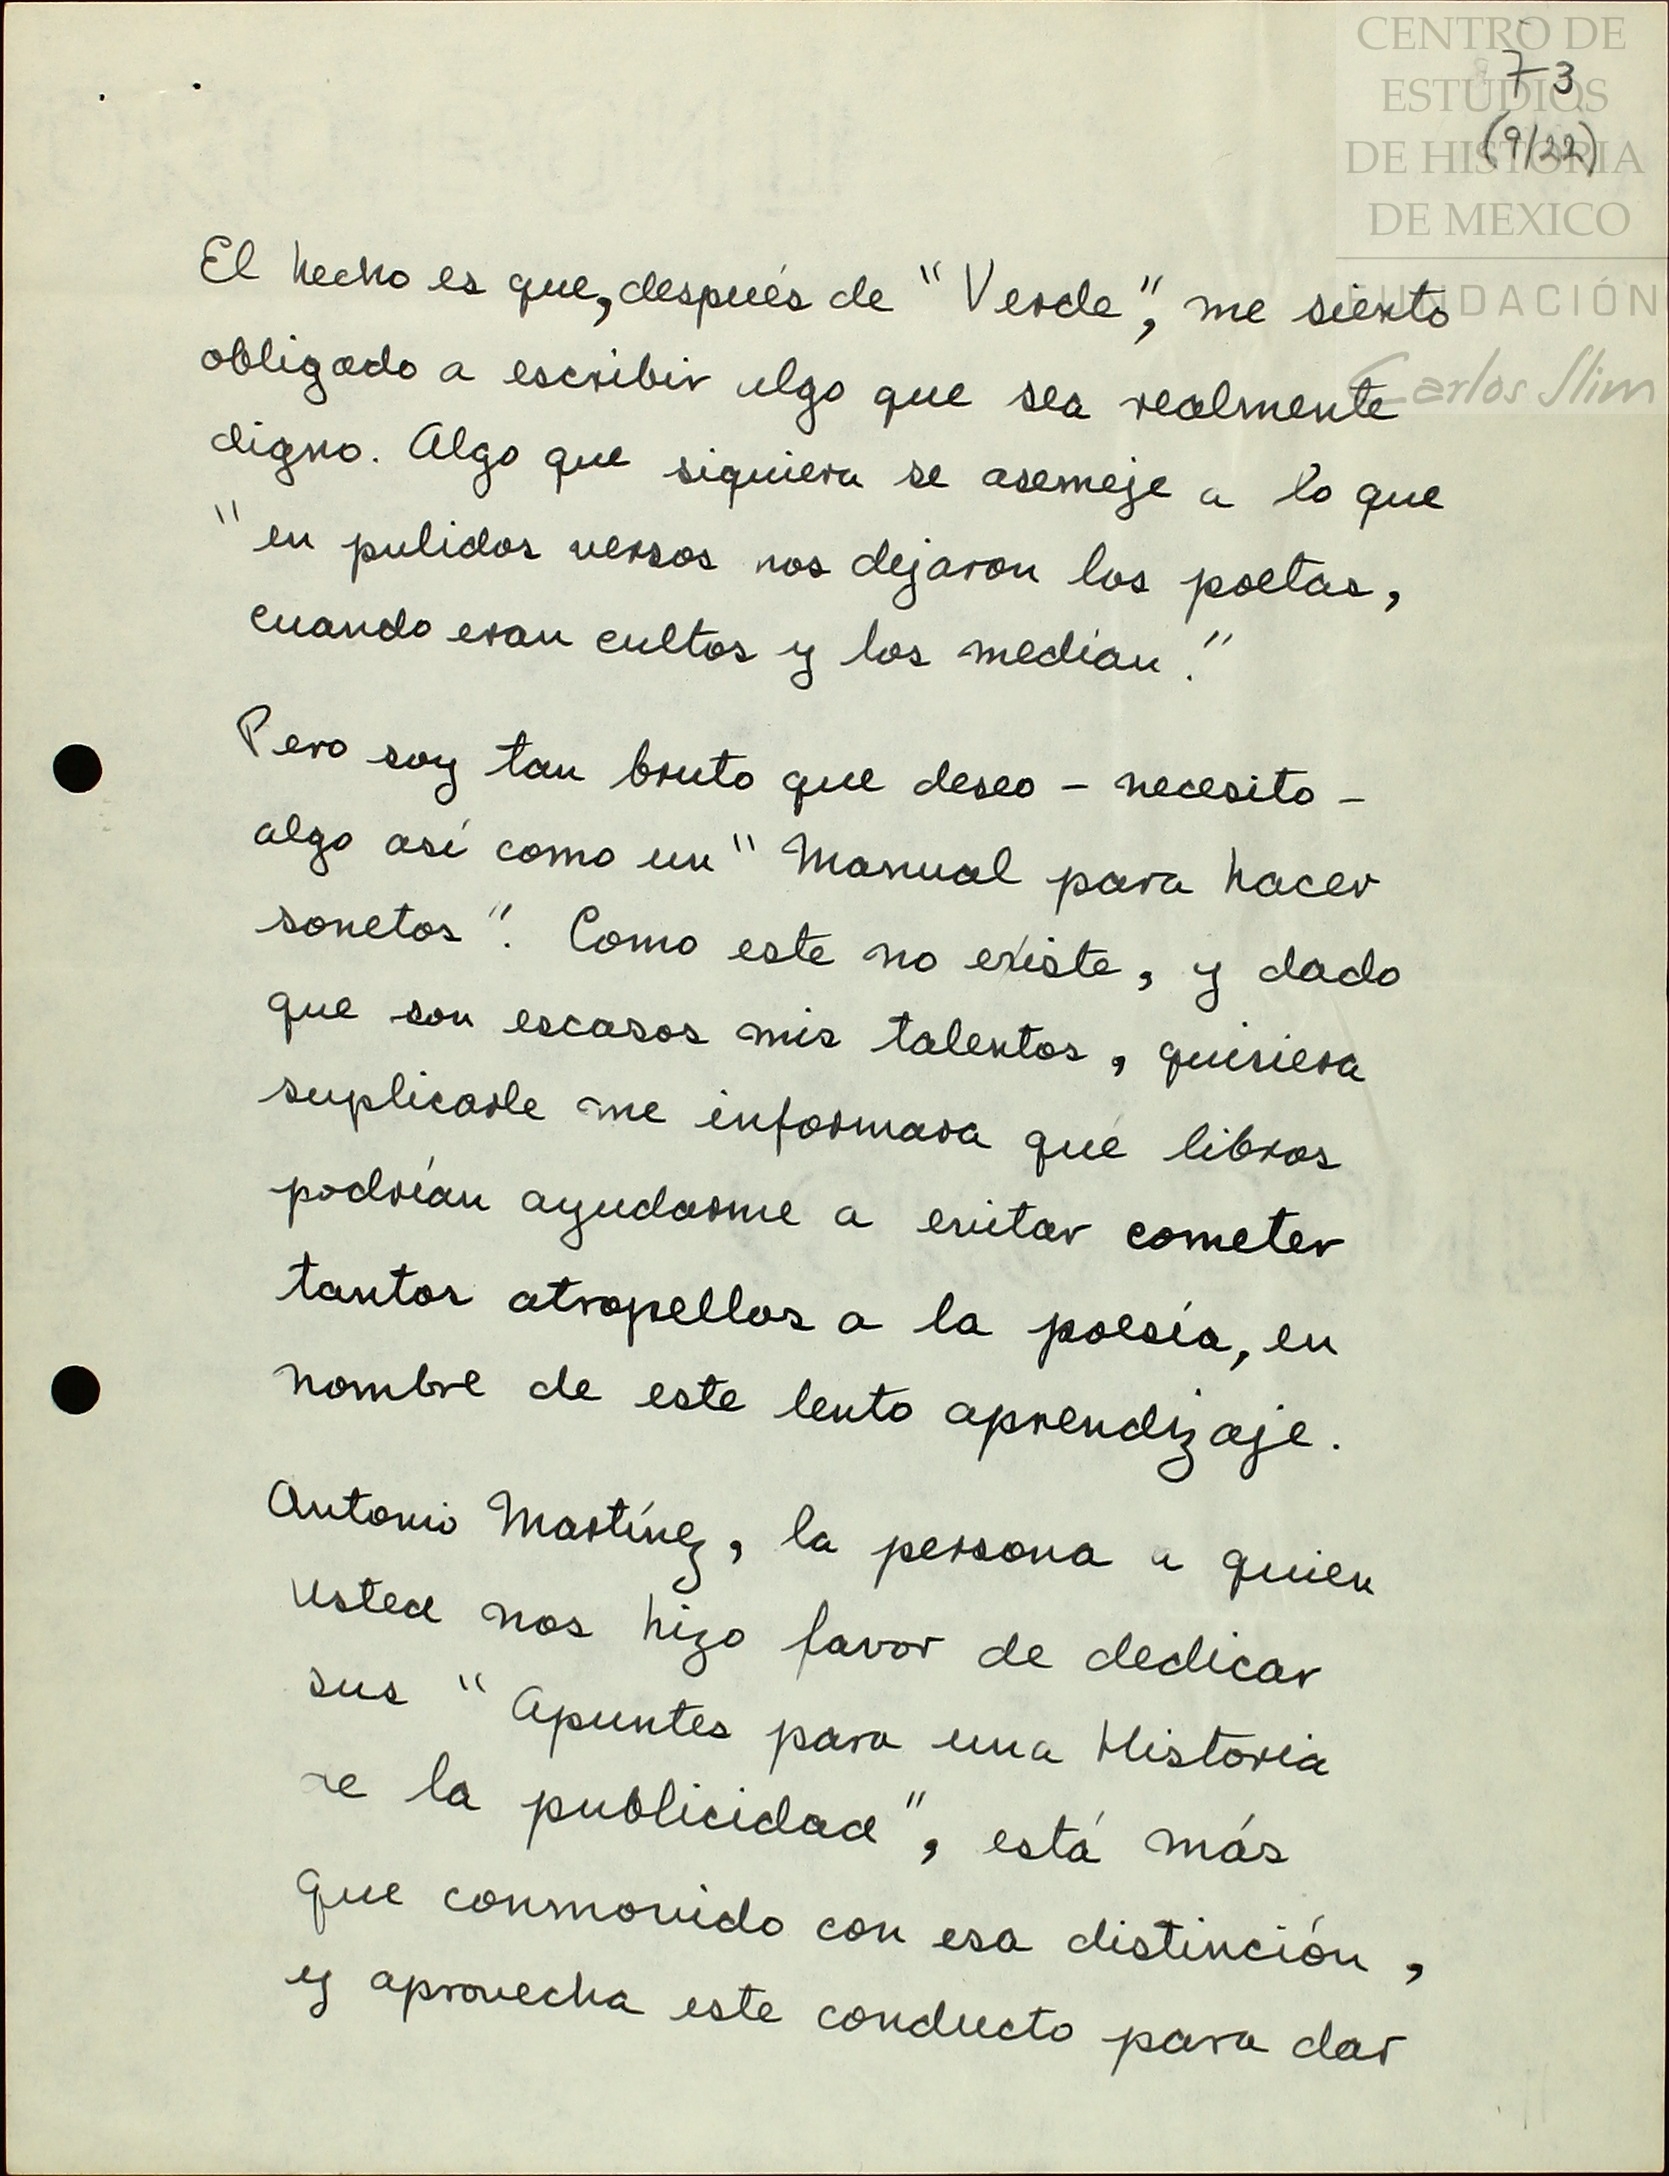 CENTRO DE
ESTUDIOS
DE HISTORIA
DE MEXICO
FUNDACIÓN
Carlos Slim
73
(9/22)
El hecho es que, después de "Verde", me siento
obligado a escribir algo que sea realmente
digno. Algo que siquiera se asemeje a lo que
"en pulidos versos nos dejaron los poetas,
cuando eran cultos y los medían."
Pero soy tan bruto que deseo - necesito -
algo así como un "Manual para hacer
sonetos". Como este no existe, y dado
que son escasos mis talentos, quisiera
suplicarle me informara qué libros
podrían ayudarme a evitar cometer
tantos atropellos a la poesía, en
nombre de este lento aprendizaje.
Antonio Martínez, la persona a quien
usted nos hizo favor de dedicar
sus "Apuntes para una Historia
de la publicidad", está más
que conmovido con esa distinción,
y aprovecha este conducto para dar